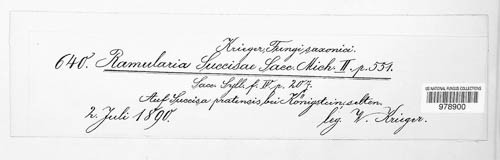 Krieger, Fungi saxonici.
640. Ramularia Succisae Sacc. Mich. II. p. 551.
Sacc. Syll. f. IV. p. 207.
Auf Succisa pratensis bei Königstein, selten.
2. Juli 1890. leg. W. Krieger.
US NATIONAL FUNGUS COLLECTIONS
978900